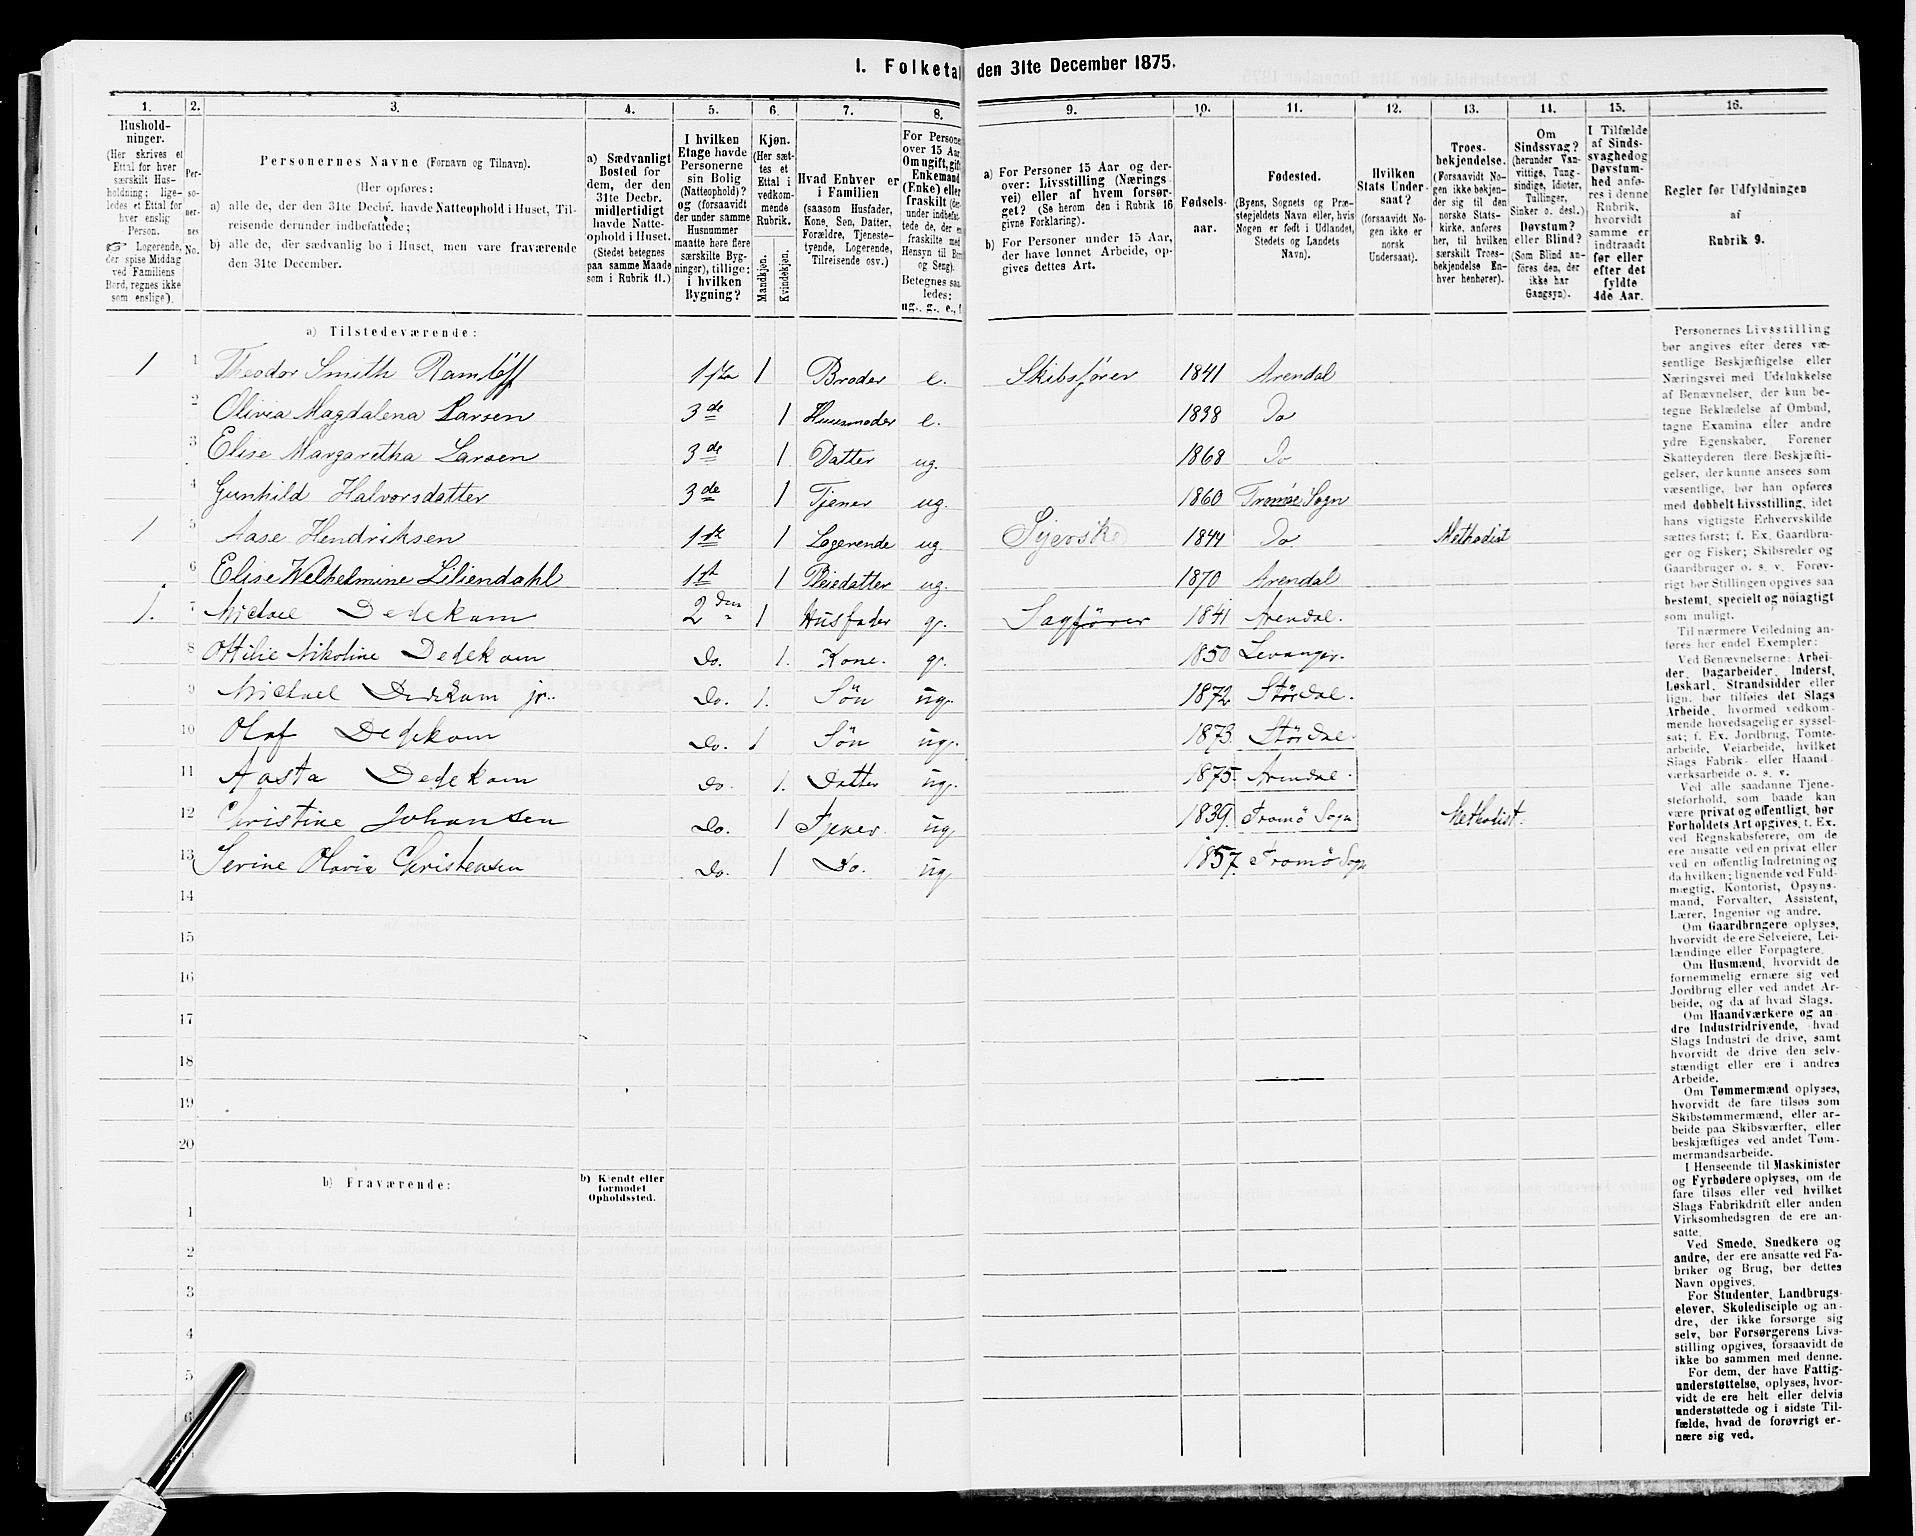 I. Folketal den 31te December 1875.
1. 2. 3. 4. 5. 6. 7. 8. 9. 10. 11. 12. 13. 14. 15. 16.
Hushold-
ninger.
(Her skrives et
Ettal for hver
særskilt Hus-
holdning; lige-
ledes et Ettal for
hver enslig
Person.
☞ Logerende,
der spise Middag
ved Familiens
Bord, regnes ikke
som enslige).
Per-
so-
ner-
nes
No.
Personernes Navne (Fornavn og Tilnavn).
(Her opføres:
a) alle de, der den 31te Decbr. havde Natteophold i Huset, Til-
reisende derunder indbefattede;
b) alle de, der sædvanlig bo i Huset, men vare fraværende
den 31te December.
a) Sædvanligt
Bosted for
dem, der den
31te Decbr.
midlertidigt
havde Natte-
ophold i Huset.
(Stedet betegnes
paa samme Maade
som i Rubrik 11.)
I hvilken
Etage havde
Personerne
sin Bolig
(Natteophold)?
og (forsaavidt
der under samme
Husnummer
maatte høre flere
særskilte Byg-
ninger), tillige:
i hvilken
Bygning?
Kjøn.
(Her sæt-
tes et
Ettal i
vedkom-
mende
Rubrik.
Mandkjøn.
Kvindekjøn.
Hvad Enhver er
i Familien
(saasom Husfader,
Kone, Søn, Datter,
Forældre, Tjeneste-
tyende, Logerende,
Tilreisende osv.)
For Persone
over 15 Aar
Om ugift, gift
Enkemand
(Enke) eller
fraskilt (der-
under indbefat-
tede de, der e
fraskilte med
Hensyn til Bord
og Seng).
Betegnes saa-
ledes:
ug., g., e., f.
a) For Personer 15 Aar og der-
over: Livsstilling (Nærings-
vei) eller af hvem forsør-
get? (Se herom den i Rubrik 16
givne Forklaring).
b) For Personer under 15 Aar,
der have lønnet Arbeide, op-
gives dettes Art.
Fødsels-
aar.
Fødested.
(Byens, Sognets og Præ-
stegjeldets Navn eller, hvis
Nogen er født i Udlandet,
Stedets og Landets
Navn).
Hvilken
Stats Under-
saat?
(forsaavidt No-
gen ikke er
norsk
Undersaat).
Troes-
bekjendelse.
(Forsaavidt No-
gen ikke bekjen-
der sig til den
norske Stats-
kirke, anføres
her, til hvilken
særskilt Troes-
bekjendelse En-
hver henhører).
Om
Sindssvag?
(herunder Van-
vittige, Tung-
sindige, Idioter,
Tullinger,
Sinker o. desl.)
Døvstum?
eller Blind?
(Som Blind an-
føres den, der
ikke har
Gangsyn).
I Tilfælde
af Sinds-
svaghed og
Døvstum-
hed anfø-
res i denne
Rubrik,
hvorvidt
samme er
indtraadt
før eller
efter det
fyldte
4de Aar.
Regler før Udfyldningen
af
Rubrik 9.
a) Tilstedeværende:
1 1 Theodor Smith Ramløff 1ste 1 Broder e. Skibsfører 1841 Arendal
2 Olivia Magdalena Larsen 3de 1 Huusmoder e. 1838 Do
3 Elise Margaretha Larsen 3de 1 Datter ug. 1868 Do
4 Gunhild Halvorsdatter 3de 1 Tjener ug. 1860 Tromøe Sogn
1 5 Aase Hendriksen 1ste 1 Logerende ug. Syerske 1844 Do. Methodist
6 Elise Welhelmine Liliendahl 1st 1 Pleiedatter ug. 1870 Arendal
1. 7 Michael Dedekam 2den 1 Husfader g. Sagfører 1841 Arendal.
8 Ottilie Nikoline Dedekam Do. 1. Kone. g. 1850 Levanger.
9 Michael Dedekam jr. Do. 1. Søn ug. 1872 Størdal.
10 Olaf Dedekam Do. 1 Søn ug. 1873. Størdal.
11 Aasta Dedekam Do. 1. Datter ug. 1875. Arendal.
12 Christine Johansen Do. 1 Tjener ug 1839. Tromö Sogn Methodist.
13 Serine Olavia Christensen Do. 1 Do. ug. 1857. Tromö Sogn
14
15
16
17
18
19
20
b) Fraværende:
b) Kjendt eller
formodet
Opholdssted.
1
2
3
4
5
6
Personernes Livsstilling
bør angives efter deres væ-
sentlige Beskjæftigelse eller
Næringsvei med Udelukkelse
af Benævnelser, der kun be-
tegne Beklædelse af Ombud,
tagne Examina eller andre
ydre Egenskaber. Forener
Skatteyderen flere Beskjæfti-
gelser, der kunne ansees som
væsentlige, bør han opføres
med dobbelt Livsstilling, idet
hans vigtigste Erhvervskilde
sættes først; f. Ex. Gaardbru-
ger og Fisker; Skibsreder og
Gaardbruger o. s. v. Forøv-
rigt bør Stillingen opgives saa
bestemt, specielt og nøiagtigt
som muligt.
Til nærmere Veiledning an-
føres her endel Exempler:
Ved Benævnelserne: Arbei-
der, Dagarbeider, Inderst,
Løskarl, Strandsidder eller
lign. bør tilføies det Slags
Arbeide, hvormed vedkom-
mende hovedsagelig er syssel-
sat; f. Ex. Jordbrug, Tomte-
arbeide, Veiarbeide, hvilket
Slags Fabrik- eller Haand-
værksarbeide o. s. v.
Ved alle saadanne Tjene-
steforhold, som baade kan
være privat og offentligt, bør
Forholdets Art opgives, t. Ex.
ved Regnskabsførere, om de
ere ansatte ved en privat eller
ved en offentlig Indretning og
da hvilken; lignende ved Fuld-
mægtig, Kontorist, Opsyns-
mand, Forvalter, Assistent,
Lærer, Ingeniør og andre.
Om Gaardbrugere oplyses,
hvorvidt de ere Selveiere, Lei-
lændinge eller Forpagtere.
Om Husmænd, hvorvidt de
fornemmelig ernære sig ved
Jordbrug eller ved andet Ar-
beide, og da af hvad Slags.
Om Haandværkere og an-
dre Industridrivende, hvad
Slags Industri de drive, samt
hvorvidt de drive den selv-
stændigt eller ere i andres
Arbeide.
Om Tømmermænd oplyses,
hvorvidt de fare tilsøs som
Skibstømmermænd, eller ar-
beide paa Skibsværfter, eller
beskjæftiges ved andet Tøm-
mermandsarbeide.
I Henseende til Maskinister
og Fyrbødere oplyses, om de
fare tilsøs eller ved hvilket
Slags Fabrikdrift eller anden
Virksomhedsgren de ere an-
satte.
Ved Smede, Snedkere og
andre, der ere ansatte ved Fa-
briker og Brug, bør dettes
Navn opgives.
For Studenter, Landbrugs-
elever, Skoledisciple og an-
dre, der ikke forsørge sig
selv, bør Forsørgerens Livs-
stilling opgives, forsaavidt de
ikke bo sammen med denne.
For dem, der have Fattig-
understøttelse, oplyses, hvor-
vidt de ere helt eller delvis
understøttede og i sidste Til-
fælde, hvad de forøvrigt er-
nære sig ved.